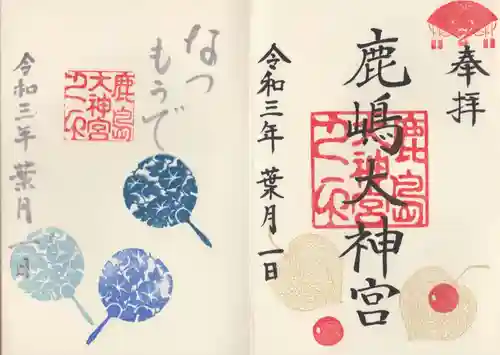 奉拝
鹿嶋大神宮
令和三年 葉月 一日
鹿島
大神宮
なつ
もうで
鹿島
大神宮
令和三年 葉月 一日